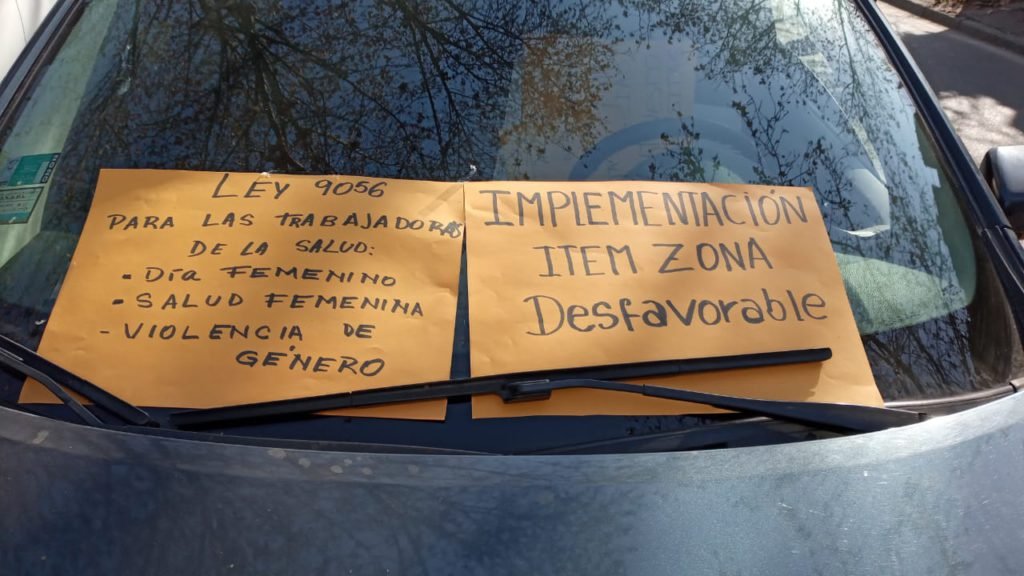 LEY 9056
PARA LAS TRABAJADORAS
DE LA SALUD:
• Día FEMENINO
• SALUD FEMENINA
- VIOLENCIA DE
GÉNERO
IMPLEMENTACIÓN
ITEM ZONA
Desfavorable